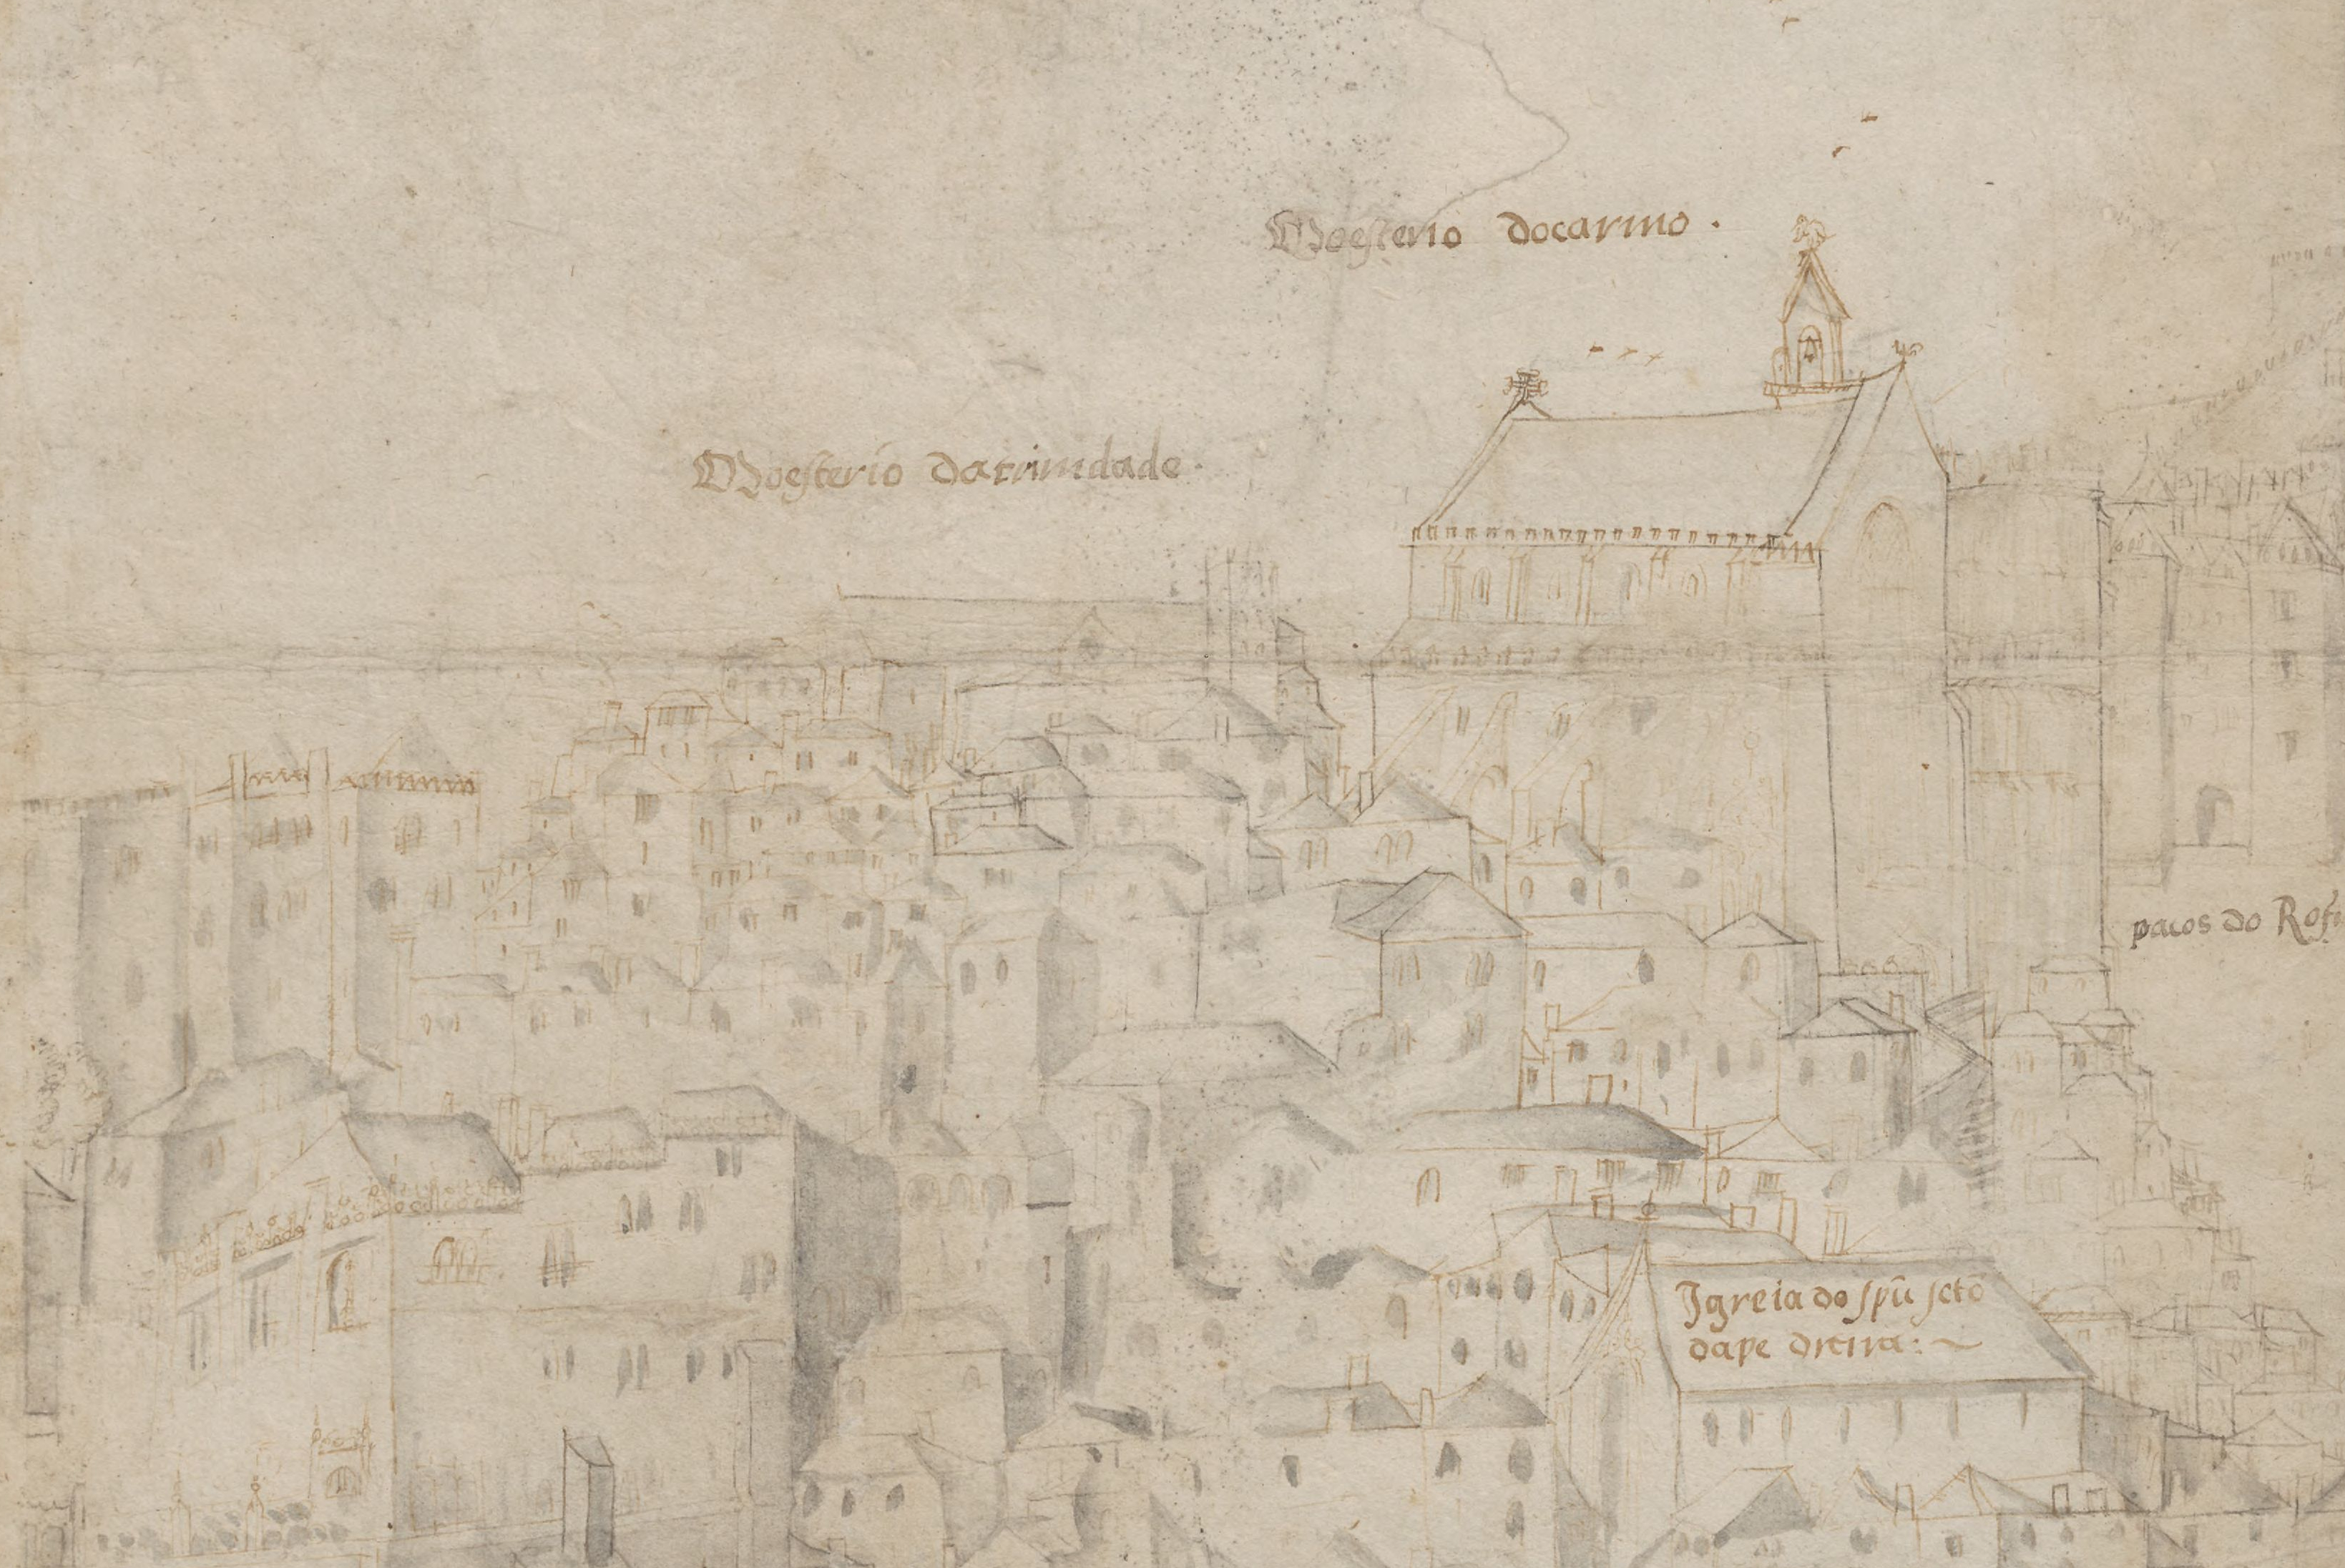 Moesterio docarmo.
Moesterio datrinidade.
pacos do
Igreia do spũ scto
dape